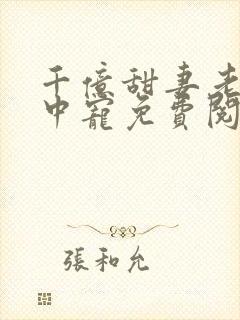 千億甜妻老
中寵免費閱
張和允